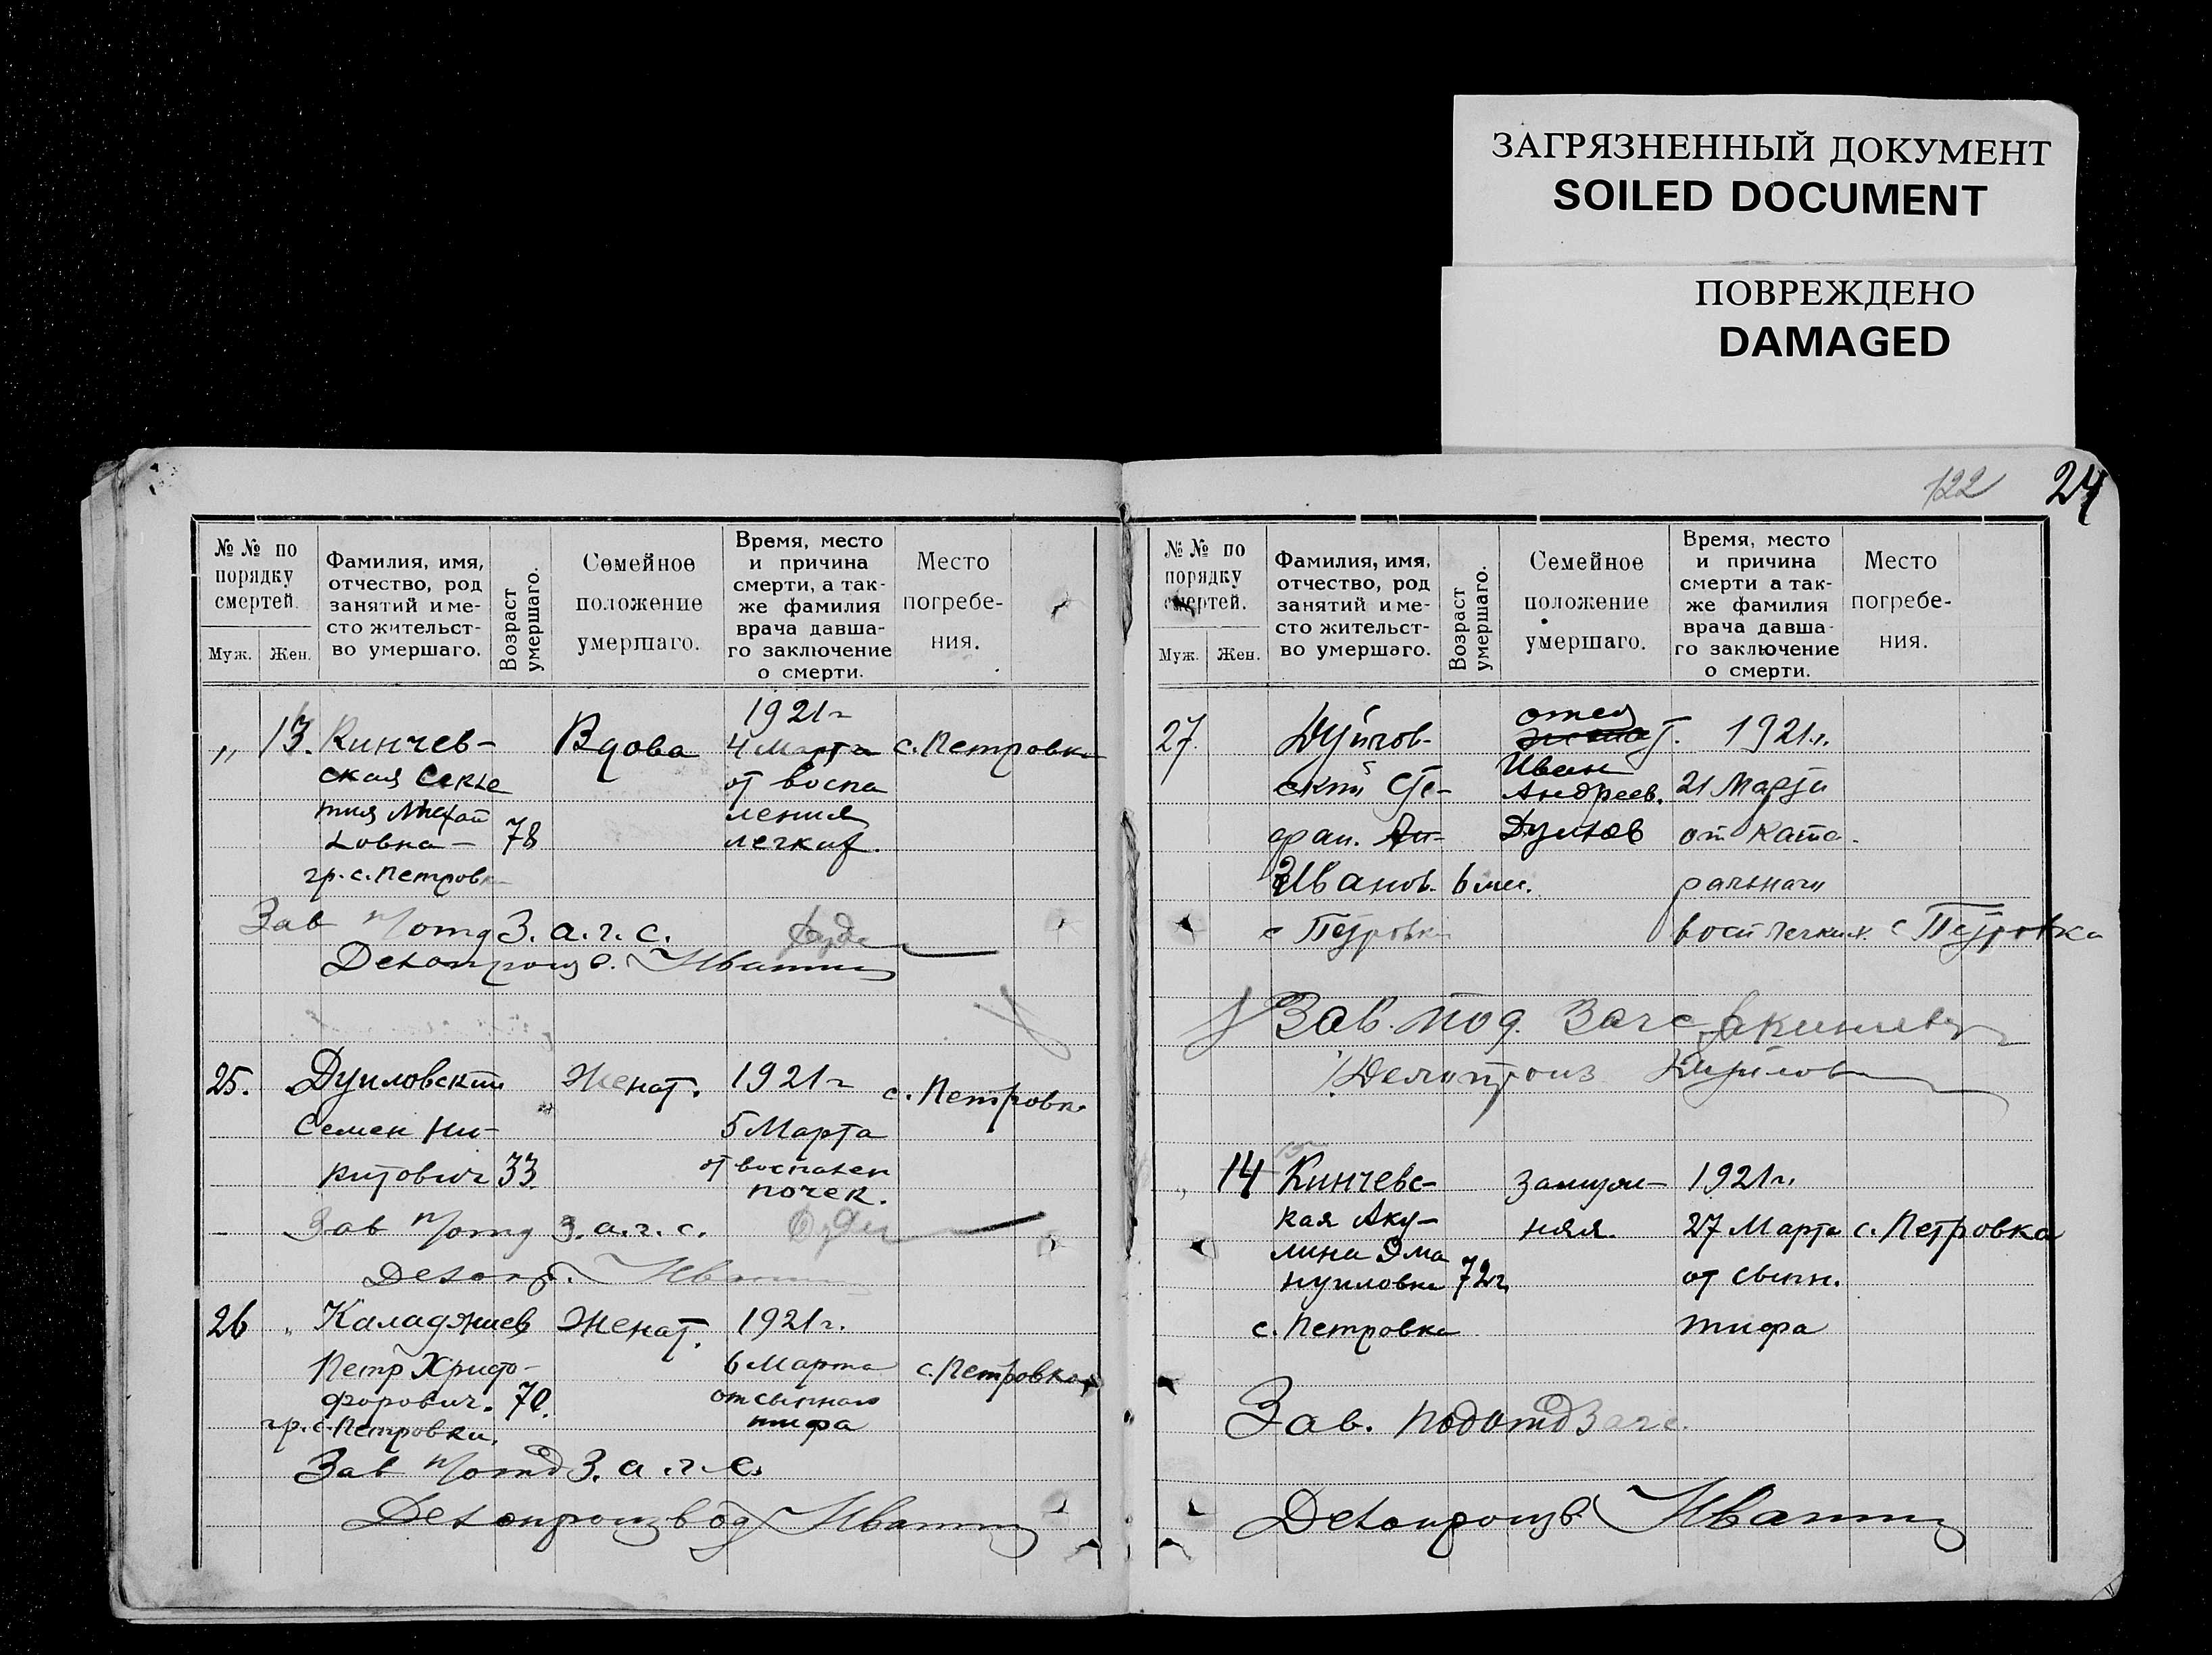 ЗАГРЯЗНЕННЫЙ ДОКУМЕНТ
SOILED DOCUMENT
ПОВРЕЖДЕНО
DAMAGED
122 24
№ № по порядку смертей.
Муж. Жен.
Фамилия, имя,
отчество, род
занятий и ме-
сто жительст-
во умершаго.
Возраст
умершаго.
Семейное
положение
умершаго.
Время, место
и причина
смерти, а так-
же фамилия
врача давша-
го заключение
о смерти.
Место
погребе-
ния.
„ 13. Кинчев-
ская
Михай
ловна — 78
гр. с. Петровк
Вдова
1921 г
4 Марта
от воспа
ления
легких.
с. Петровка
Зав п/отд З. а. г. с.
Делопроизв.
25. Дуиловский
Семен Ни-
китович 33
Женат.
1921 г
5 Марта
от воспален
почек.
с. Петровк
Зав п/отд З. а. г. с.
Делопр.
26 „ Каладжиев
Петр Христо-
форович. 70.
гр. с. Петровки.
Женат.
1921 г.
6 Марта
от сыпного
тифа
с. Петровка
Зав п/отд З. а. г. с.
Делопроизвод
№ № по
порядку
смертей.
Муж. Жен.
Фамилия, имя,
отчество, род
занятий и ме-
сто жительст-
во умершаго.
Возраст
умершаго.
Семейное
положение
умершаго.
Время, место
и причина
смерти а так-
же фамилия
врача давша-
го заключение
о смерти.
Место
погребе-
ния.
27.
ский Сте-
фан. Ан-
Иванов. 6 мес.
с Петровки
отец
Иван
Андреев.
1921 г.
21 Марта
от ката-
рального
восп легких.
с Петровка
Зав. под. Загс
Делопроиз
„ 14 Кинчевс-
кая Аку-
лина Эма
нуиловна 72 г.
с. Петровка
Замуж-
няя.
1921 г.
27 Марта
от сыпн.
тифа
с. Петровка
Зав. подотд Загс.
Делопроизв